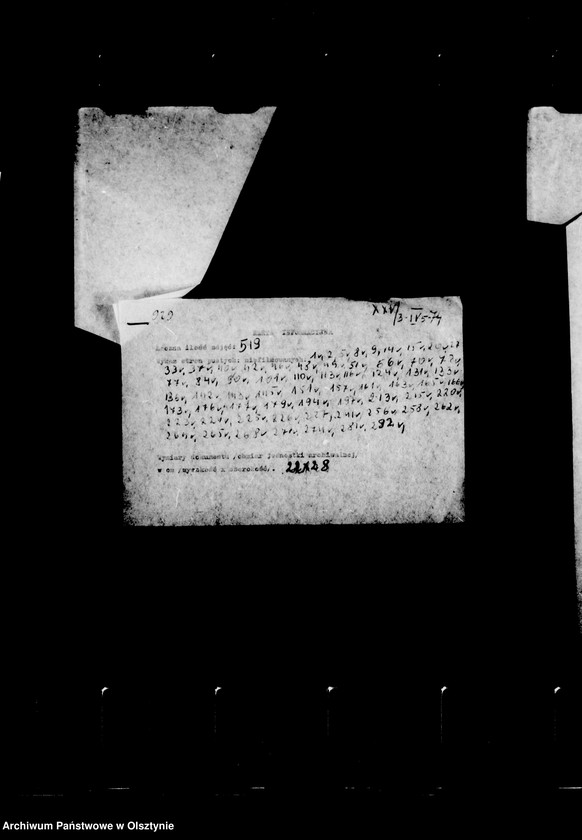 929
XXVI/3-IV5-74
KARTA INFORMACYJNA
Łączna ilość zdjęć: 519
Wykaz stron pustych, niefilmowanych: 1v, 2, 5v, 8v, 9, 14v, 15v, 20v
33v, 37v, 40v, 42v, 46v, 48v, 49v, 51v, 66v, 70v, 72v,
77v, 84v, 90v, 101v, 110v, 113v, 116v, 124v, 131v, 133v
136v, 142v, 143v, 145v, 151v, 157v, 161v, 163v, 165v, 166v
173v, 176v, 177v, 179v, 194v, 197v, 213v, 215v, 220v
223v, 224v, 225v, 226v, 227v, 241v, 256v, 258v, 262v,
264v, 265v, 268v, 271v, 274v, 281v, 282v,
Wymiary dokumentu /obmiar jednostki archiwalnej,
w cm /wysokość x szerokość,. 22x28
Archiwum Państwowe w Olsztynie